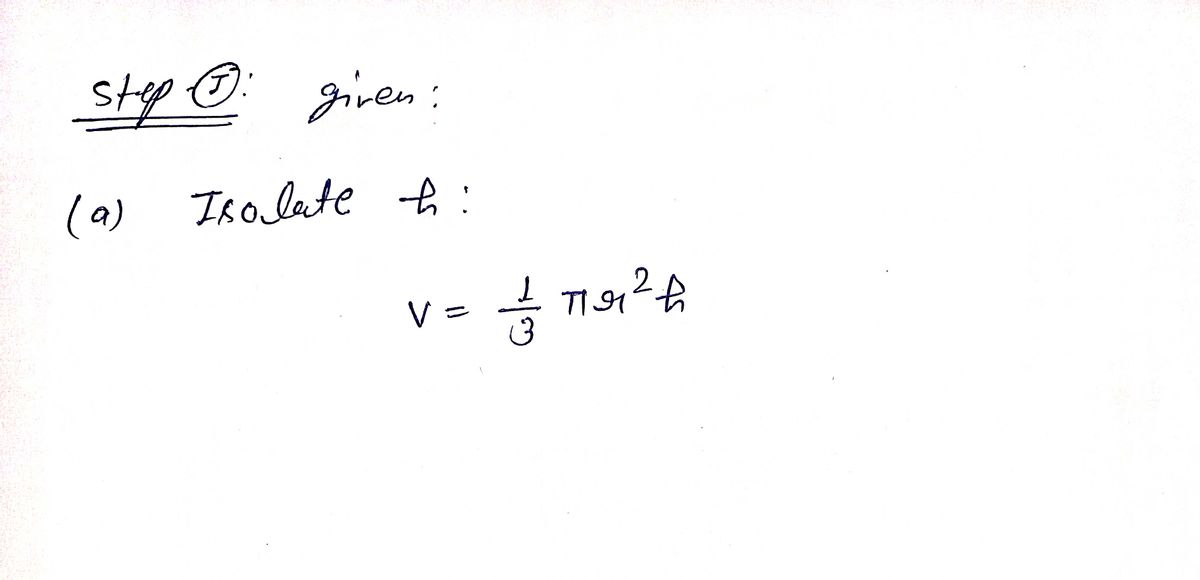 step-①: given:
(a) Isolate h:
V = 1/3 πr²h